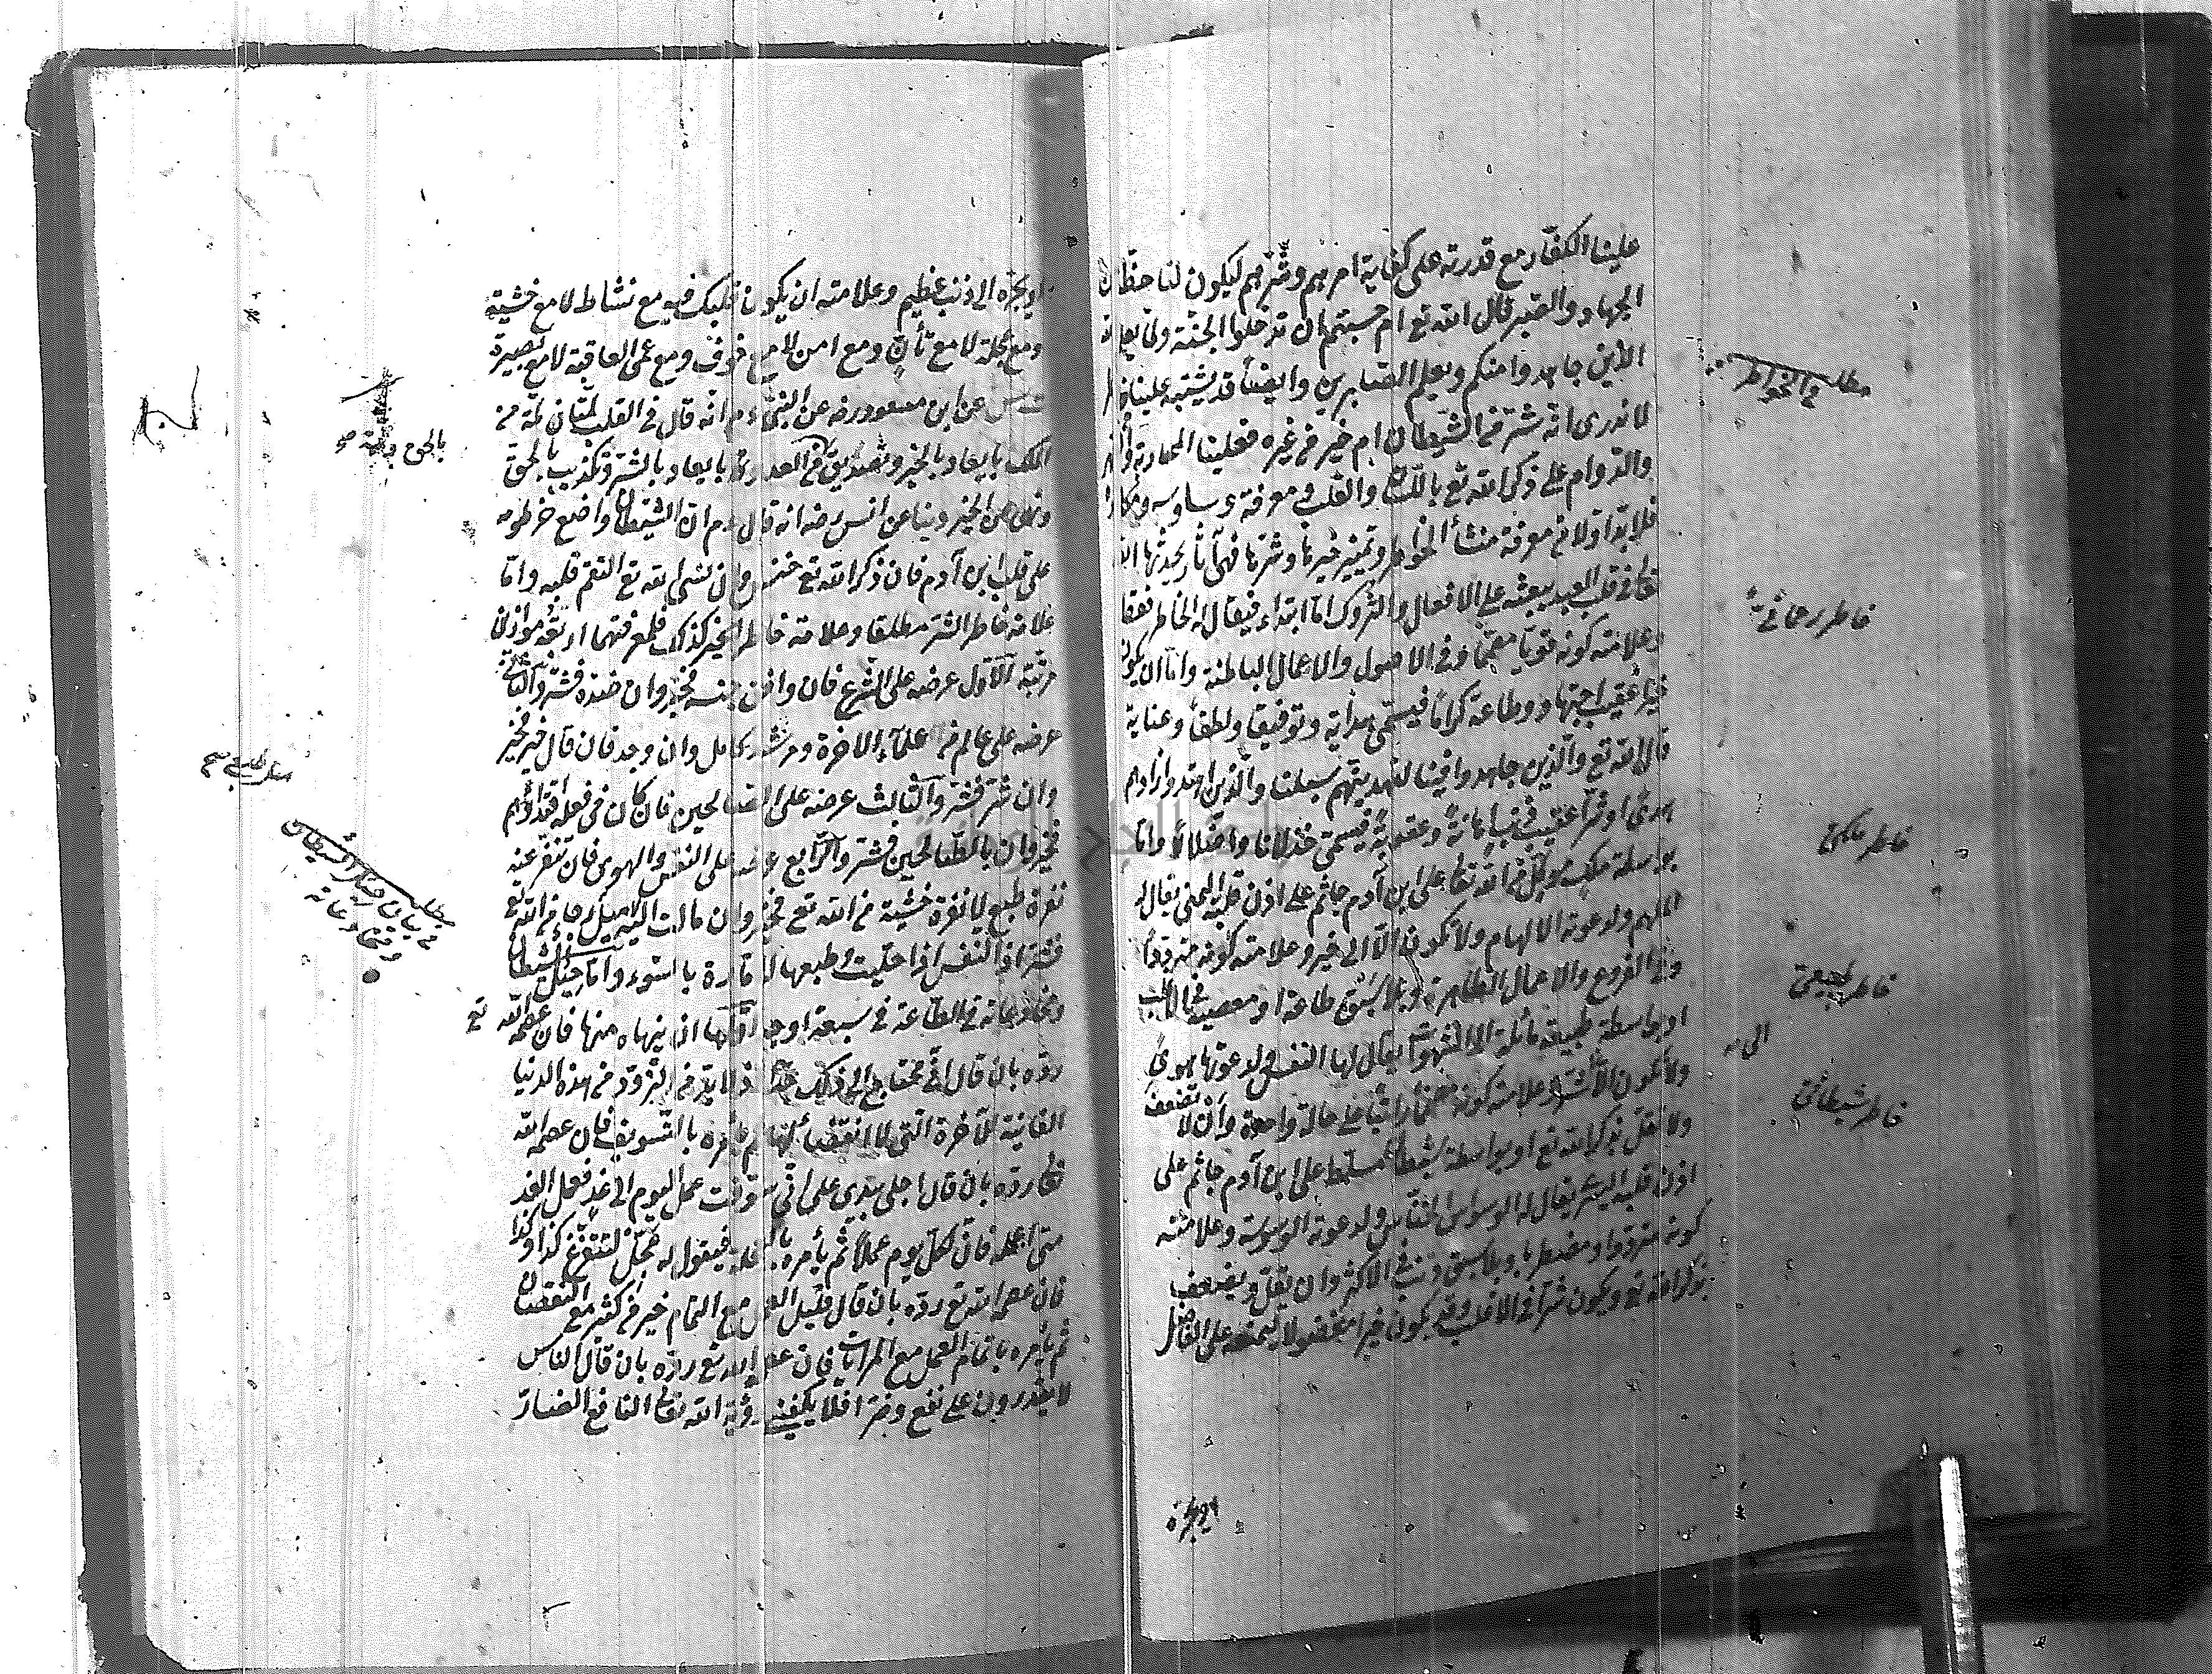 علينا الكفار مع قدرته على كفاية امرهم وشرهم ليكون لنا حظ
الجهاد والصبر قال الله تع ام حسبتم ان تدخلوا الجنة ولما يعلم الله
الذين جاهدوا منكم ويعلم الصابرين وايضا قد يشتبه علينا
لا ندرى انه شر من الشيطان ام خير من غيره فعلينا المحاربة
والدوام على ذكر الله تع باللسان والقلب ومعرفة وساوسه
فلا بد اولا من معرفة منشأ الخواطر وتمييز خيرها وشرها فهى آثار يحدثها الله
تعالى فى قلب العبد يبعثه على الافعال والتروك اما ابتداء فيقال له الخاطر فقط
وعلامته كونه قويا مصمما وفى الاصول والاعمال الباطنة واما ان يكون
خيرا عقيب اجتهاد وطاعة اكراما فيسمى هداية وتوفيقا ولطفا وعناية
قال الله تع والذين جاهدوا فينا لنهدينهم سبلنا والذين اهتدوا زادهم
هدى او شرا عقيب ذنب اهانة وعقوبة فيسمى خذلانا واضلالا واما
بواسطة ملك موكل من الله تعالى على ابن آدم جاثم على اذن قلبه اليمنى يقال له
الملهم ولدعوته الالهام ولا تكون الا الى خير وعلامته كونه مترددا
وفى الفروع والاعمال الظاهرة وبلا سبق طاعة او معصية فى الاغلب
او بواسطة طبيعة مائلة الى الشهوات يقال لها النفس ولدعوتها هوى
ولا تكون الا لشر وعلامته كونه مصمما راتبا على حالة واحدة وان لا تضعف
ولا تقل بذكر الله تع او بواسطة شيطان مسلط على ابن آدم جاثم على
اذن قلبه اليسرى يقال له الوسواس الخناس ولدعوته الوسوسة وعلامته
كونه مترددا ومضطربا وبلا سبق ذنب فى الاكثر وان يقل ويضعف
بذكر الله تع ويكون شرا فى الاغلب وقد يكون خيرا مفضولا ليمنعه على الفاضل
او يجره
مطلب الخواطر
خاطر رحمانى
خاطر ملكى
خاطر طبيعى
الى
خاطر شيطانى
او يجره الى ذنب عظيم وعلامته ان يكون قلبك فيه مع نشاط لا مع خشية
ومع عجلة لا مع تأن ومع امن لا مع خوف ومع عمى العاقبة لا مع بصيرة
عن ابن مسعود رضه عن النبى انه قال فى القلب لمتان لمة من
الملك بايعاد بالخير وتصديق ولمة من العدو بايعاد بالشر وتكذيب بالحق
ونهى عن الخير دنيا عن انس رضه انه قال ان الشيطان واضع خرطومه
على قلب ابن آدم فان ذكر الله تع خنس وان نسى الله تع التقم قلبه واما
علامة خاطر الشر مطلقا وعلامة خاطر الخير كذلك فلمعرفتهما اربعة موازين
مرتبة الاول عرضه على الشرع فان وافق جنسه فخير وان ضده فشر والثانى
عرضه على عالم من علماء الاخرة ومرشد كامل وان وجد فان قال خير فخير
وان شر فشر والثالث عرضه على الصالحين فان كان فى فعله اقتداؤهم
فخير وان بالطالحين فشر والرابع عرضه على النفس والهوى فان تنفر عنه
نفرة طبع لا نفرة خشية من الله تع فخير وان مالت اليه ميل لا رجاء من الله تع
فشر اذ النفس اذا خليت وطبعها لامارة بالسوء واما حيل الشيطان
ومخادعاته فى الطاعة فى سبعة اوجه اولها ان ينهاه عنها فان عصمه الله تع
رده بان قال انى محتاج الى ذلك جدا اذ لا بد من التزود من هذه الدنيا
الفانية للآخرة التى لا انقضاء لها ثم يأمره بالتسويف فان عصمه الله
تعالى رده بان قال اجلى بيدى على انى سوفت عمل اليوم الى غد فعمل الغد
متى اعمله فان لكل يوم عملا ثم يأمره بالعجلة فيقول له عجل لتتفرغ كذا وكذا
فان عصمه الله تع رده بان قال قليل العمل مع التمام خير من كثير مع النقصان
ثم يأمره باتمام العمل مع المراياة فان عصمه الله تع رده بان قال الناس
لا يقدرون على نفع وضر افلا يكفينى رؤية الله تعالى النافع الضار
مطلب
فى بيان حيل الشيطان
ومخادعاته